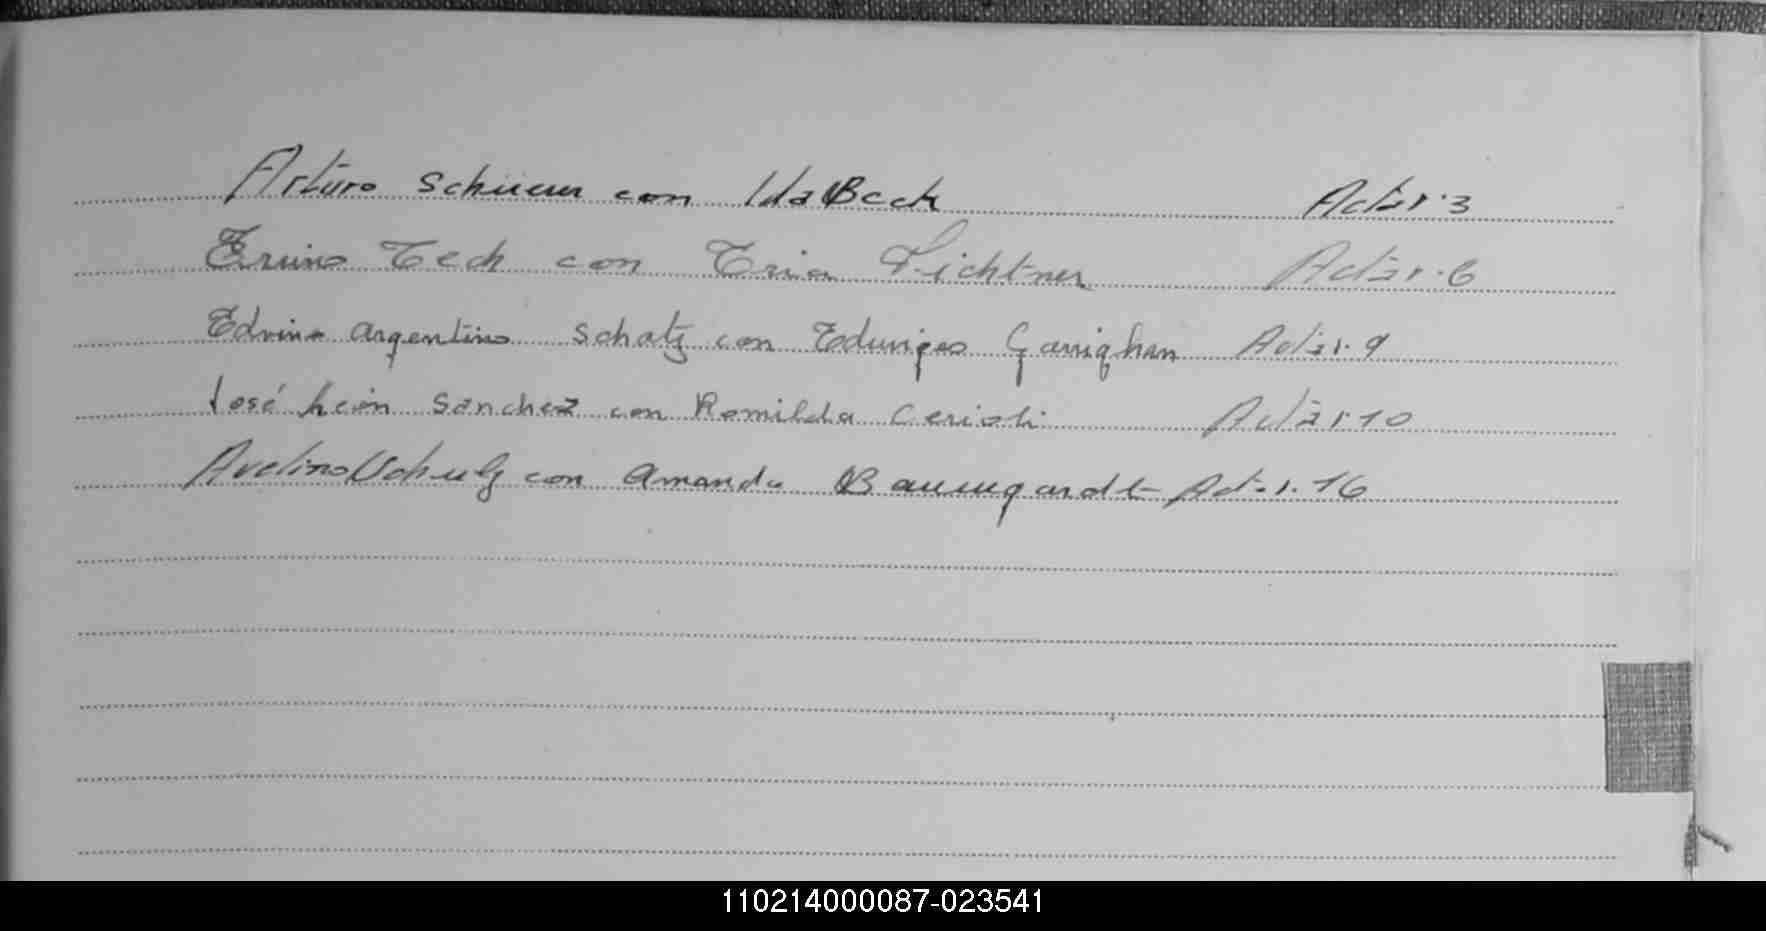 Arturo Schüeur con Ida Beck Acta r. 3
Eruino Tech con Eria Lichtner Acta r. 6
Edvino argentino Schatz con Eduviges Garrighan Acta r. 9
José León Sanchez con Romilda Cerioti Acta r 10
Avelino Schulz con Amanda Baumgardt Acta r. 16
110214000087-023541